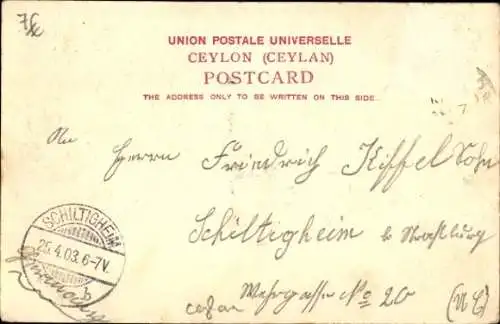 UNION POSTALE UNIVERSELLE
CEYLON (CEYLAN)
POSTCARD
THE ADDRESS ONLY TO BE WRITTEN ON THIS SIDE.
An
Herrn Friedrich Kiffel Sohn
Schiltigheim b Straßburg
SCHILTIGHEIM
25.4.03.6-7V.
b
Wehrgasse No 20